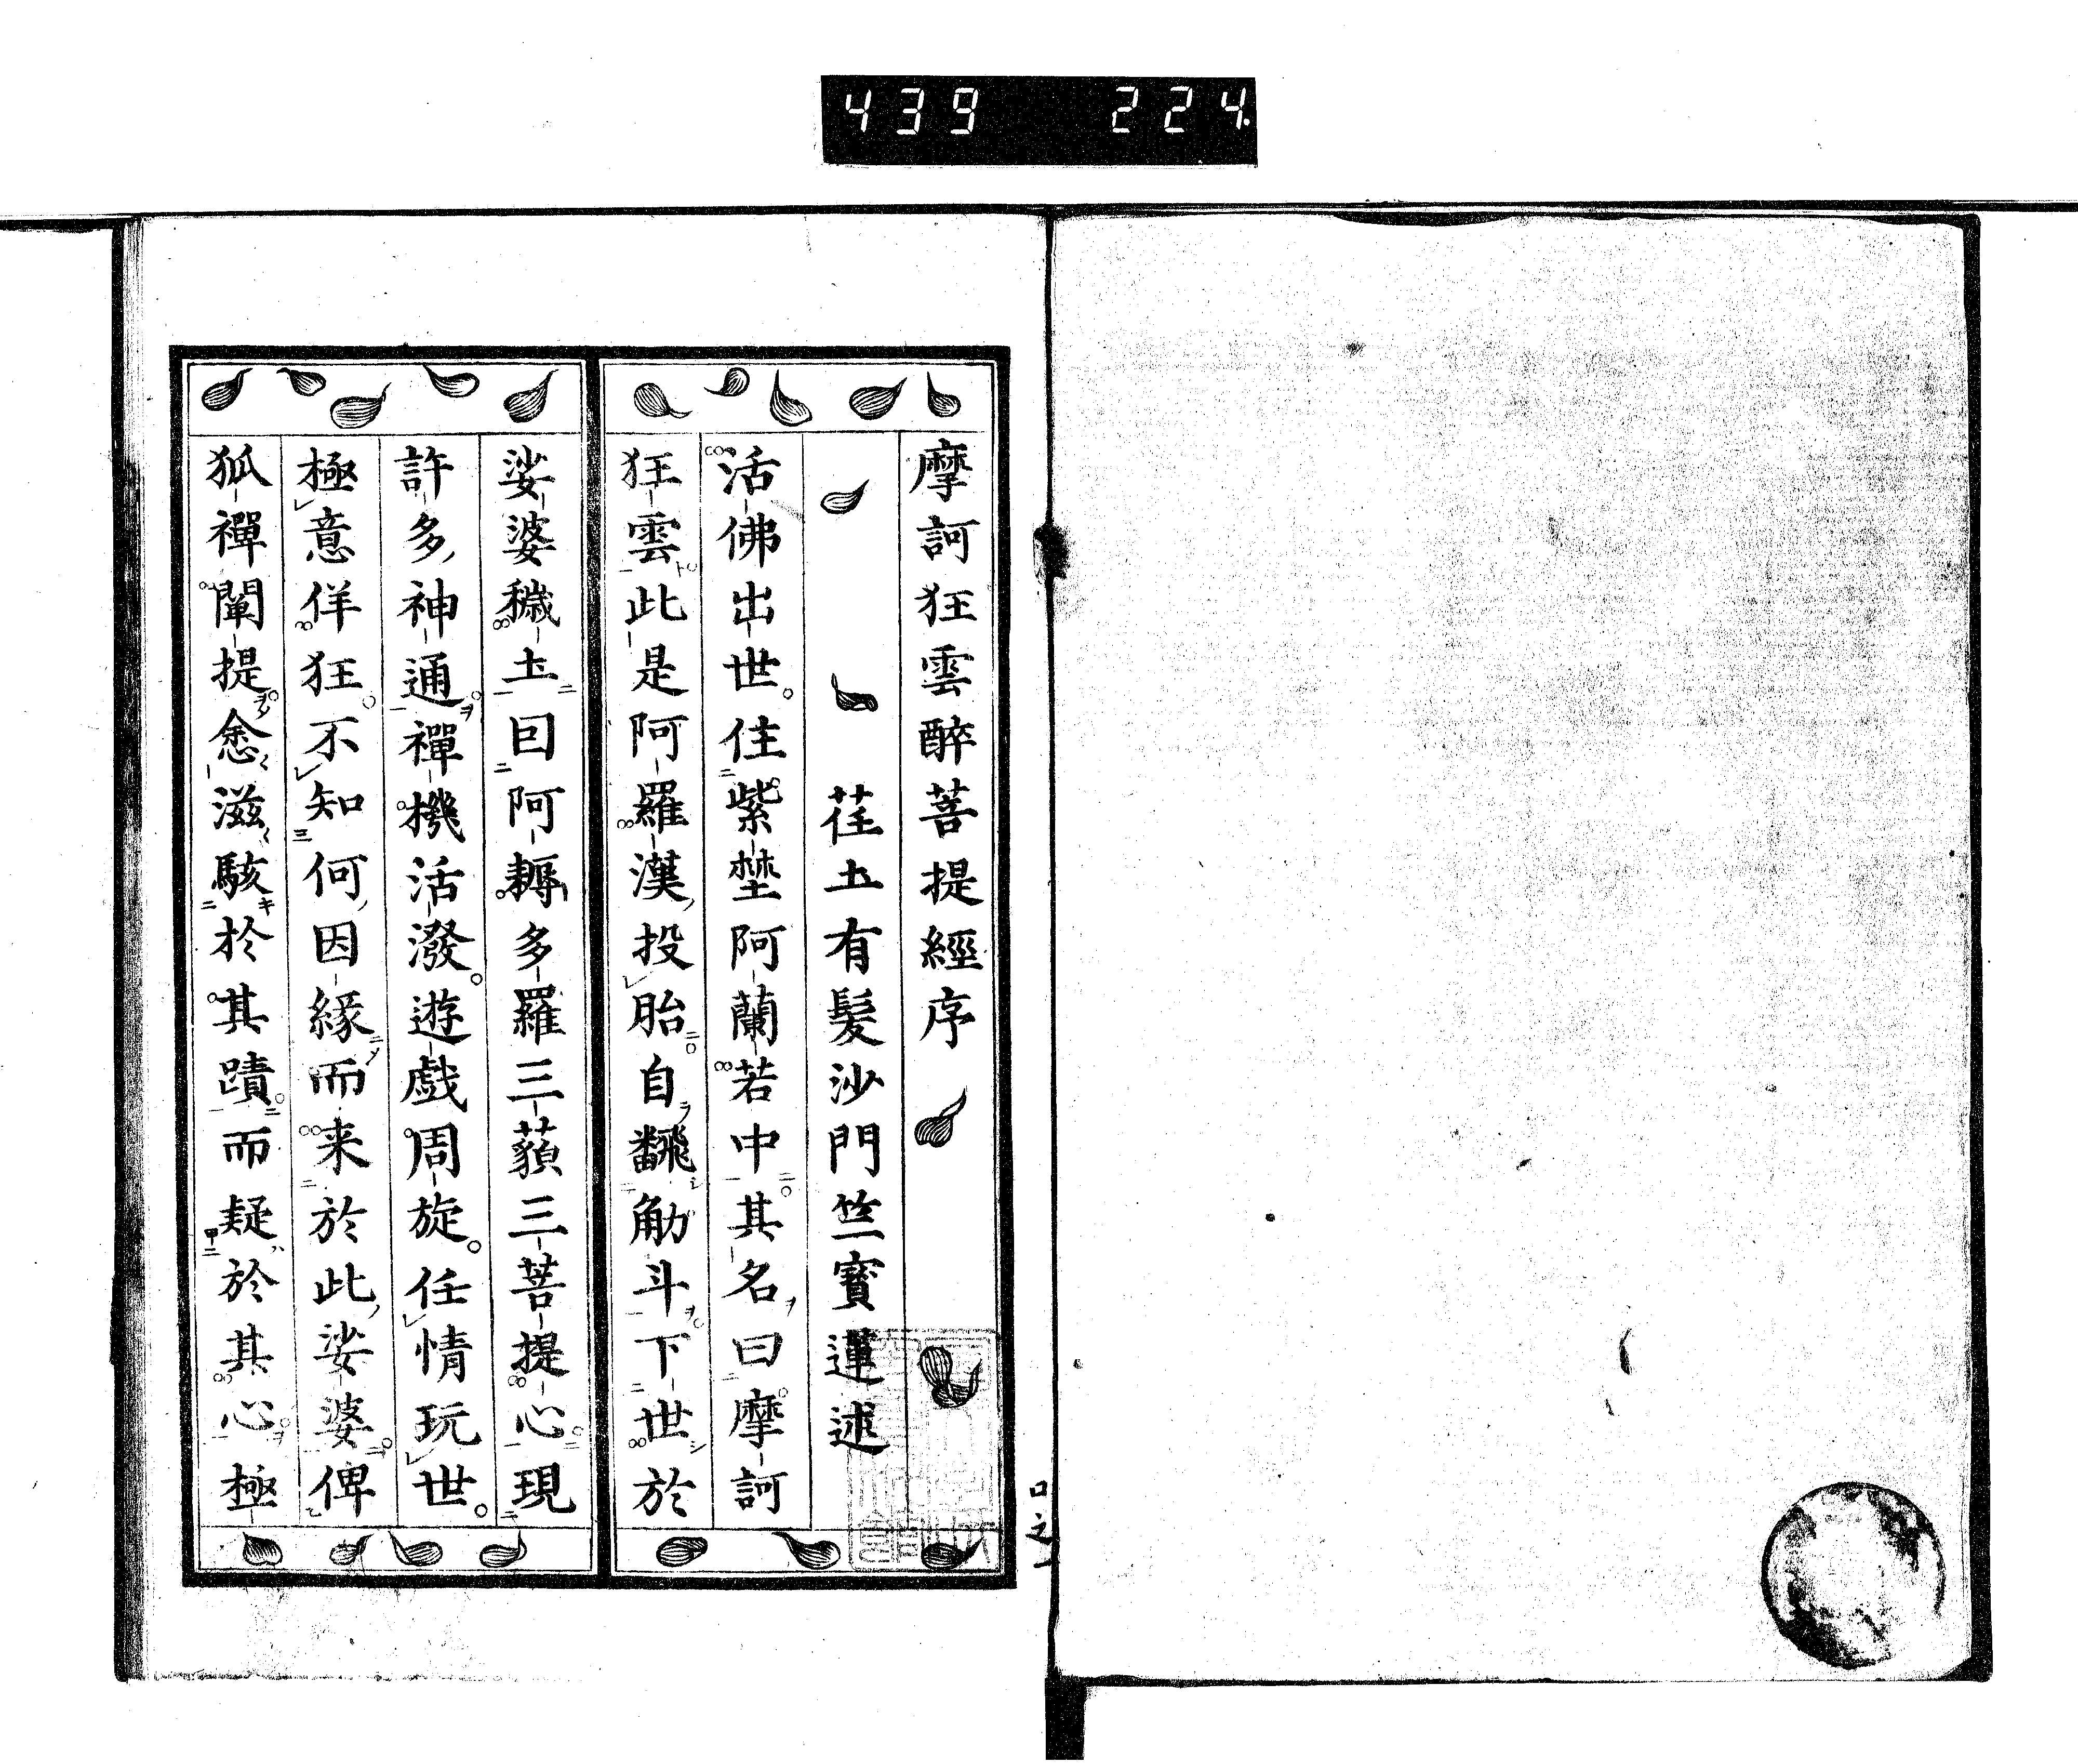 439 224
摩訶狂雲醉菩提經序
荏土有髮沙門竺寳蓮述
活佛出世住紫埜阿蘭若中其名曰摩訶
狂雲此是阿羅漢投胎自飜觔斗下世於
娑婆穢土囙阿耨多羅三藐三菩提心現
許多神通禪機活潑遊戯周旋任情玩世
極意佯狂不知何因緣而来於此娑婆俾
狐禪闡提悆滋駭於其蹟而疑於其心極
口之一